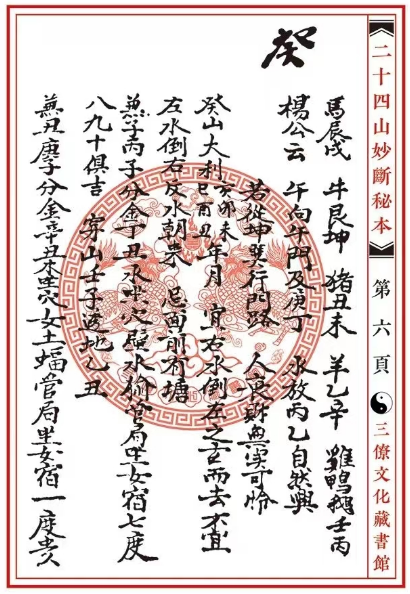 二十四山妙斷秘本
第六頁
三僚文化藏書館
癸
馬辰戌 牛艮坤 豬丑未 羊乙辛 雞鴨鵝壬丙
楊公云 午向午門及庚丁 水放丙乙自然興
若從坤巽行門路 人衰財無实可怜
癸山大利亥卯未巳酉丑年月 宜右水倒左之玄而去不宜
左水倒右反水朝來 忌面前有塘
兼子丙子分金丁丑水坐穴壁水貐管局坐女宿七度
八九十俱吉 穿山壬子透地乙丑
兼丑庚子分金辛丑木坐穴女土蝠管局坐女宿一度貴